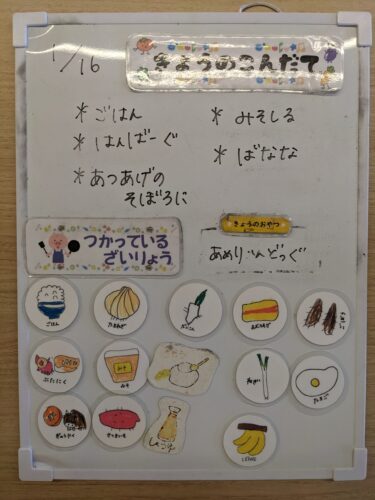 1/16
きょうのこんだて
*ごはん
*はんばーぐ
*あつあげの
そぼろに
*みそしる
*ばなな
つかっている
ざいりょう
きょうのおやつ
あめりかんどっぐ
ごはん
たまねぎ
だいこん
ぶたにく
みそ
ねぎ
たまご
ぎゅうにく
さつまいも
しょうゆ
ばなな